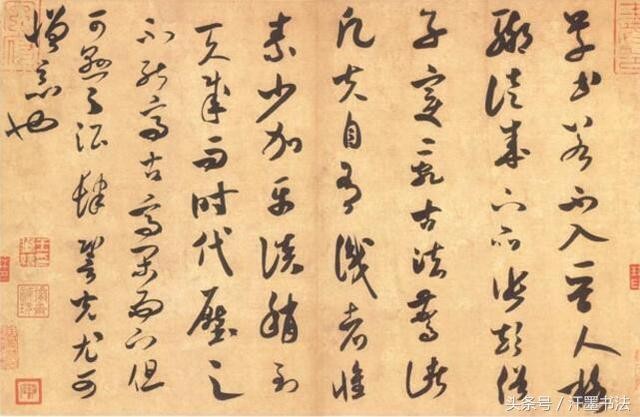 草書若不入晉人格
輒徒成下品張顛俗
子變亂古法驚諸
凡夫自有識者懷
素少加平淡稍到
天成而時代壓之
不能高古高閑而下但
可懸之酒肆䛒光尤可
憎惡也
头条号 / 汗墨书法